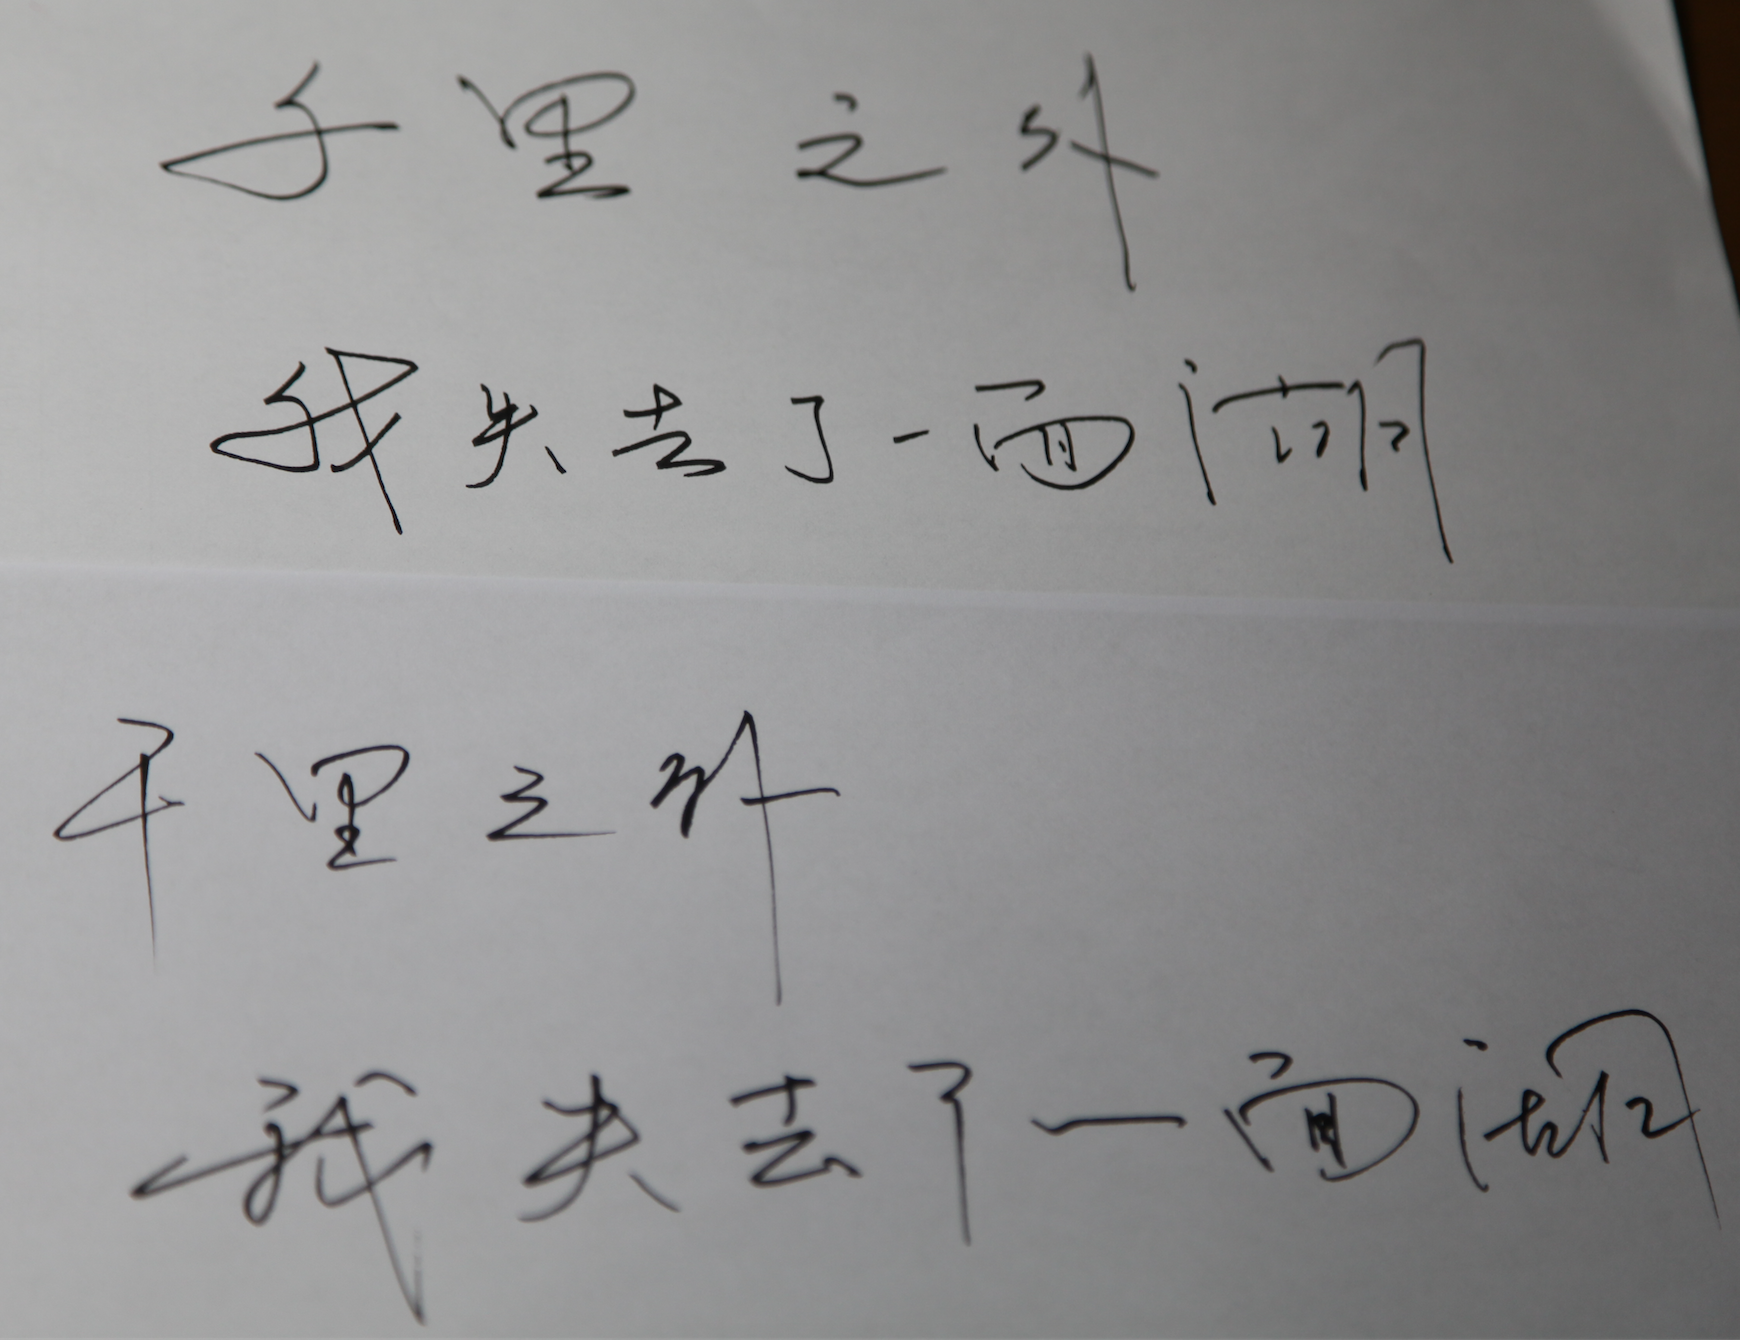 千里之外
我失去了一面湖
千里之外
我失去了一面湖